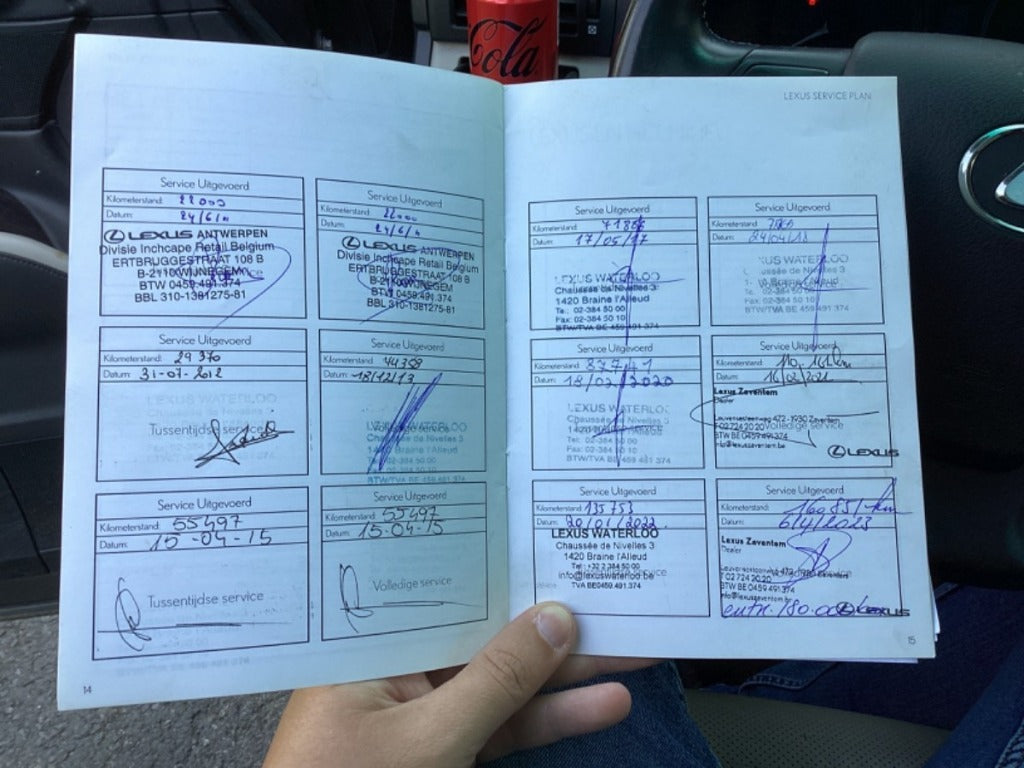 Cola
LEXUS SERVICE PLAN
Service Uitgevoerd
Kilometerstand: 22000
Datum: 24/6/11
LEXUS ANTWERPEN
Divisie Inchcape Retail Belgium
ERTBRUGGESTRAAT 108 B
B-2110 WIJNEGEM
BTW 0459.491.374
BBL 310-1381275-81
Service Uitgevoerd
Kilometerstand: 22000
Datum: 24/6/11
LEXUS ANTWERPEN
Divisie Inchcape Retail Belgium
ERTBRUGGESTRAAT 108 B
B-2110 WIJNEGEM
BTW 0459.491.374
BBL 310-1381275-81
Service Uitgevoerd
Kilometerstand: 29 370
Datum: 31-07-2012
LEXUS WATERLOO
Chaussée de Nivelles 3
Tussentijdse service
Service Uitgevoerd
Kilometerstand: 44358
Datum: 18/12/13
LEXUS WATERLOO
Volledige service
Chaussée de Nivelles 3
1420 Braine l'Alleud
Tel: 02-384 50 00
Fax: 02-384 50 10
BTW/TVA BE 459 491 374
Service Uitgevoerd
Kilometerstand: 55497
Datum: 15-04-15
Tussentijdse service
Service Uitgevoerd
Kilometerstand: 55497
Datum: 15-04-15
Volledige service
14
Service Uitgevoerd
Kilometerstand:
Datum: 17/05/17
LEXUS WATERLOO
Chaussée de Nivelles 3
1420 Braine l'Alleud
Te.: 02-384 50 00
Fax: 02-384 50 10
BTW/TVA BE 459 491 374
Service Uitgevoerd
Kilometerstand:
Datum: 24/04/18
XUS WATERLOO
ussée de Nivelles 3
Te. 02-384 50 00
Fax: 02-384 50 10
BTW/TVA BE 459 491 374
Service Uitgevoerd
Kilometerstand: 87741
Datum: 18/02/2020
LEXUS WATERLOO
Chaussée de Nivelles 3
1420 Braine l'Alleud
Tel: 02-384 50 00
Fax: 02-384 50 10
BTW/TVA BE 459 491 374
Service Uitgevoerd
Kilometerstand:
Datum: 16/02/2021
Lexus Zaventem
Dealer
Leuvensesteenweg 472 - 1930 Zaventem
T 02 724 20 20
Volledige service
BTW BE 0459 491 374
info@lexuszaventem.be
LEXUS
Service Uitgevoerd
Kilometerstand: 135753
Datum: 20/01/2022
LEXUS WATERLOO
Chaussée de Nivelles 3
1420 Braine l'Alleud
Tel: +32 2 384 50
info@lexuswaterloo.be
TVA BE0459.491.374
Service Uitgevoerd
Kilometerstand: 160851 km
Datum: 6/4/2023
Lexus Zaventem
Dealer
Leuvensesteenweg 472 - 1930 Zaventem
T 02 724 20 20
BTW BE 0459 491 374
info@lexuszaventem.be
LEXUS
15